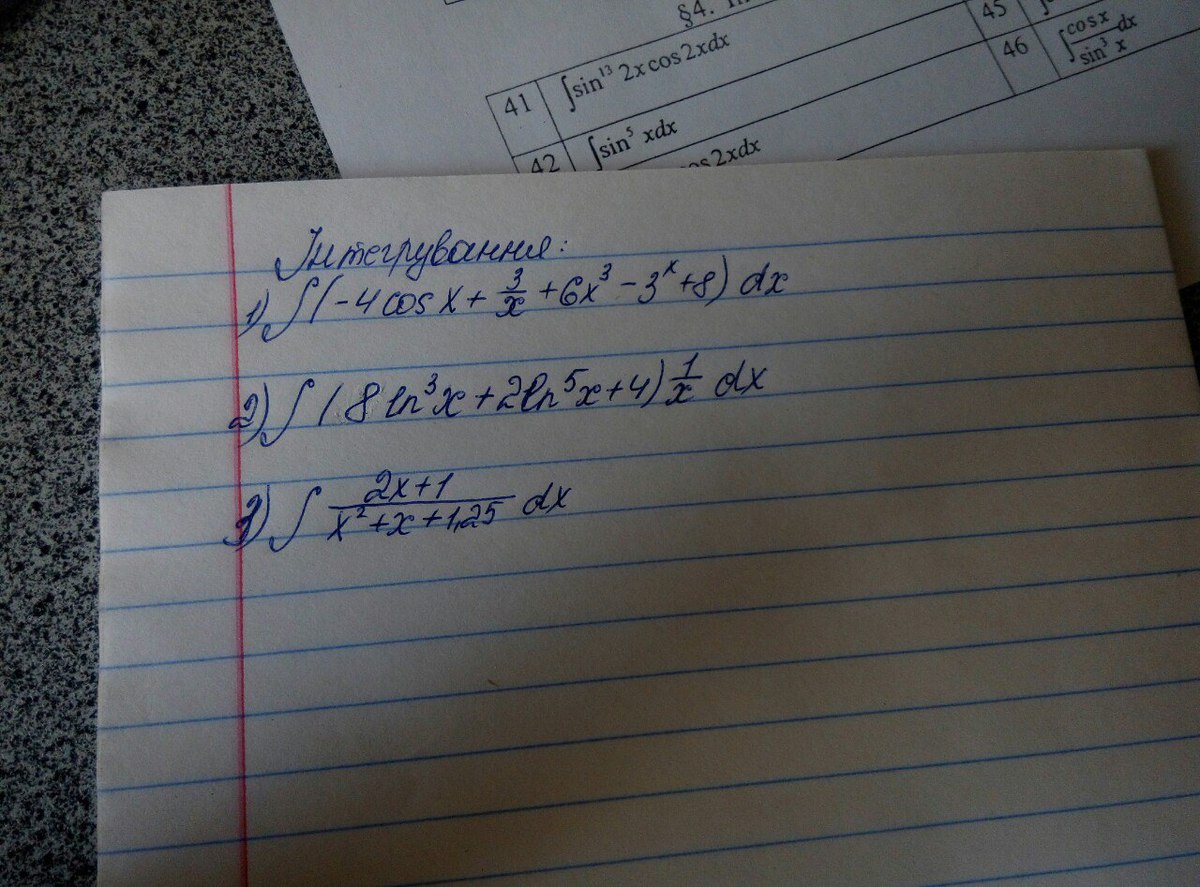 §4.
41 ∫sin¹³ 2x cos 2xdx 45
42 ∫sin⁵ xdx 46 ∫cos x/sin³ x dx
cos 2xdx
Інтегрування:
1) ∫(-4 cos x + 3/x + 6x³ - 3ˣ + 8) dx
2) ∫(8 ln³x + 2ln⁵x + 4) 1/x dx
3) ∫ 2x+1/x²+x+1,25 dx